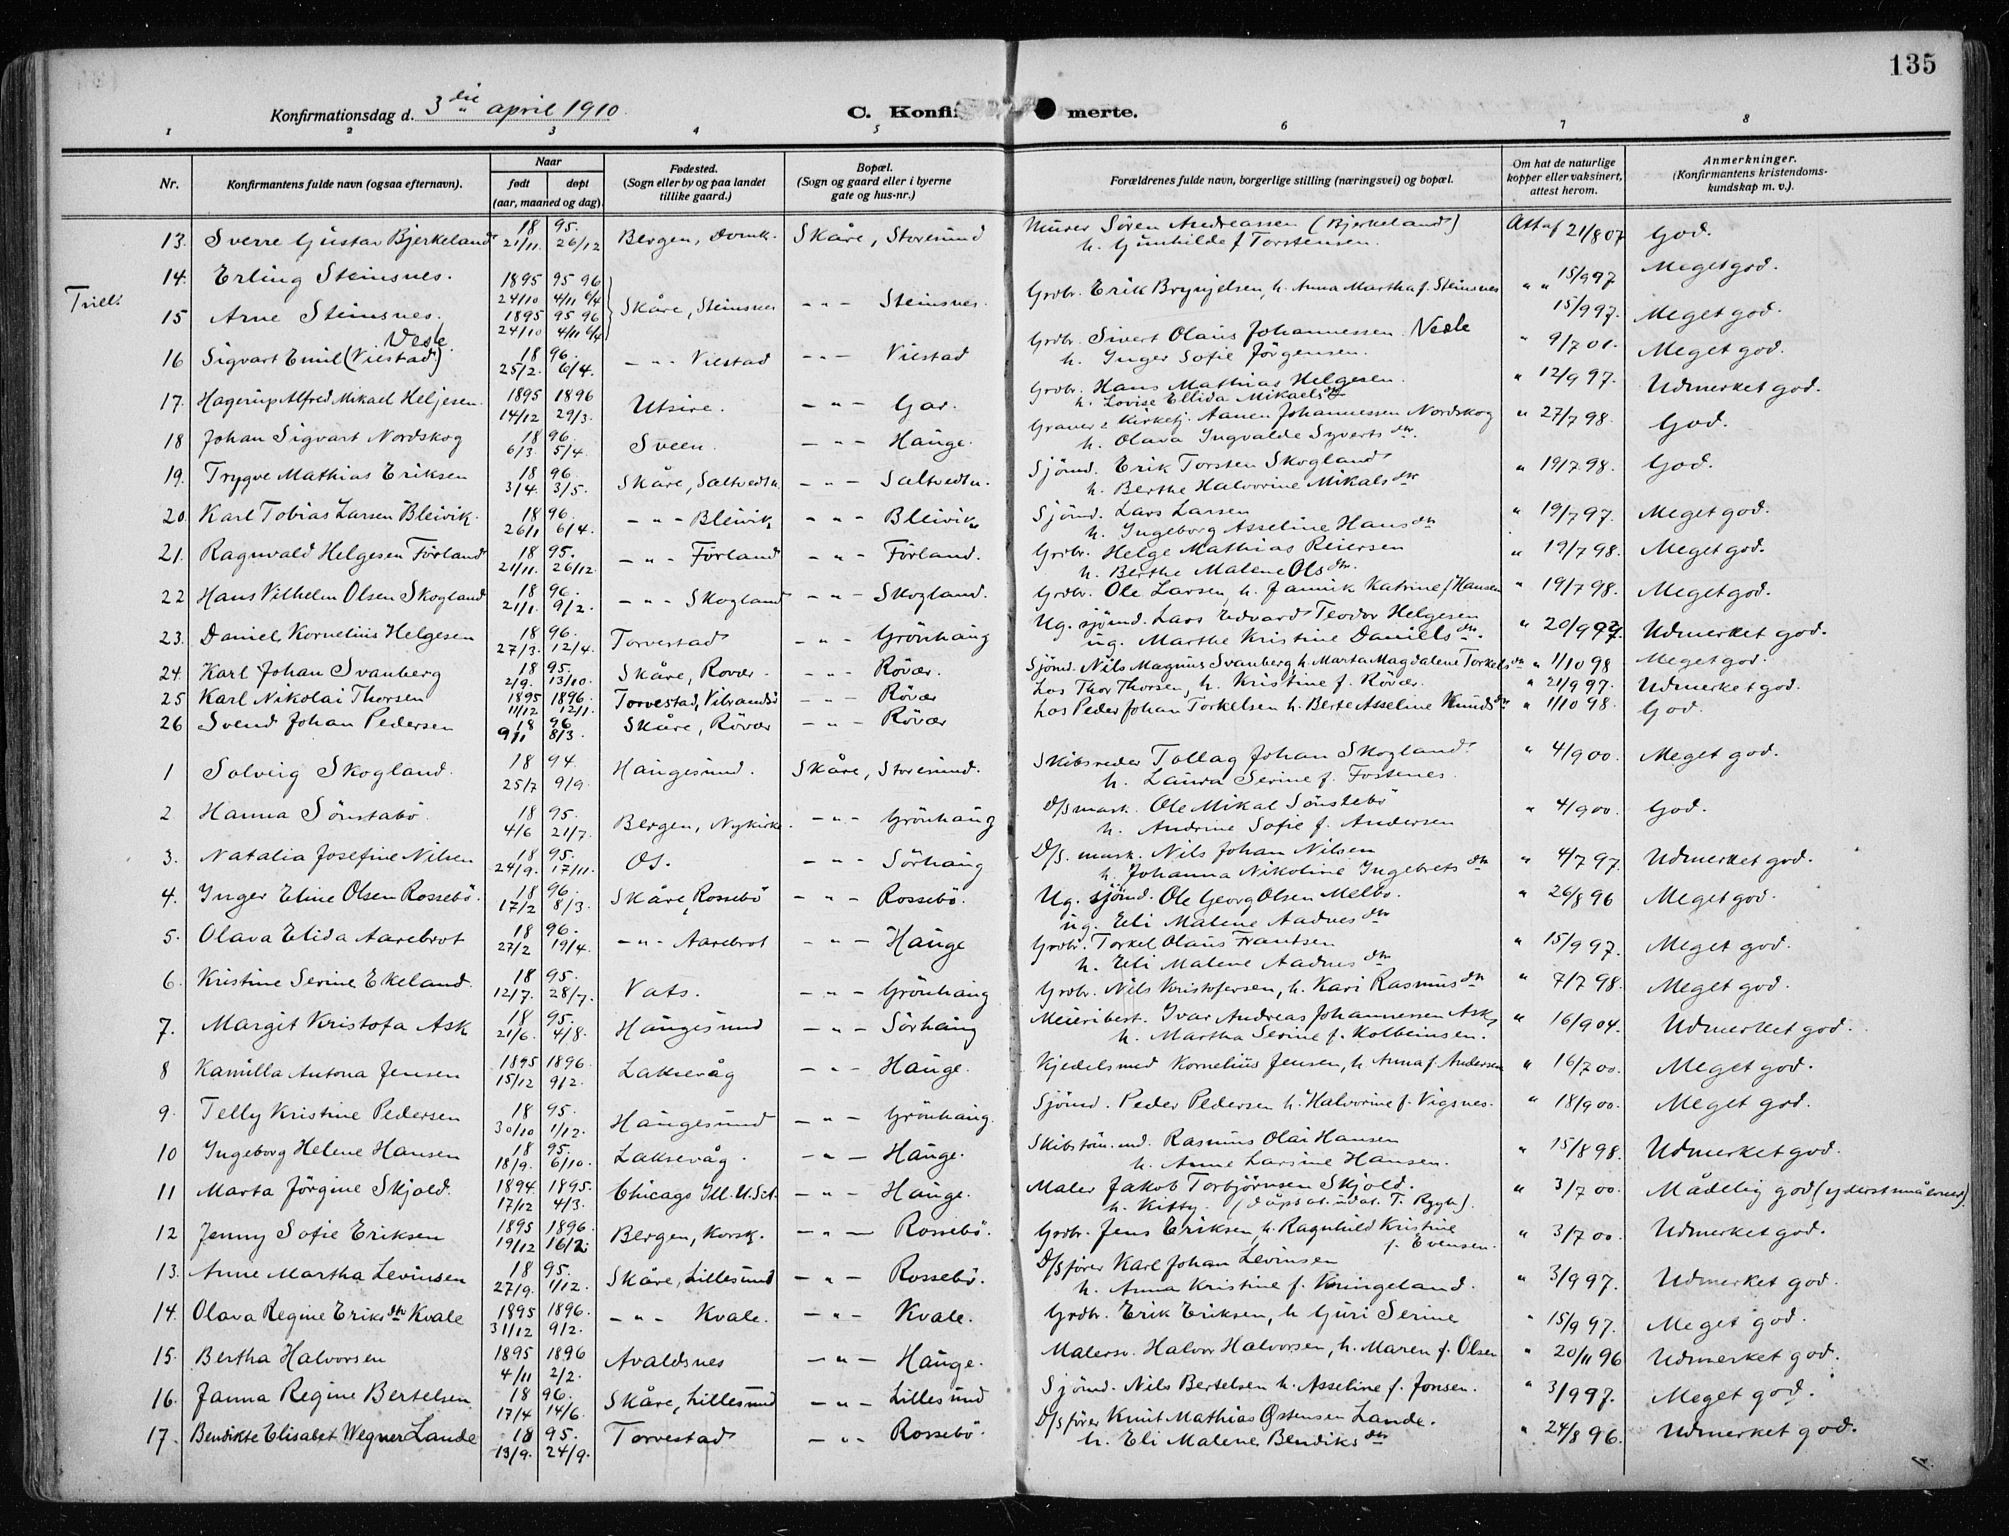 135
Konfirmationsdag d. 3die april 1910. C. Konfi merte.
1 2 3 4 5 6 7 8
Nr. Konfirmantens fulde navn (ogsaa efternavn). Naar født døpt (aar, maaned og dag). Fødested. (Sogn eller by og paa landet tillike gaard.) Bopæl. (Sogn og gaard eller i byerne gate og hus-nr.) Forældrenes fulde navn, borgerlige stilling (næringsvei) og bopæl. Om hat de naturlige kopper eller vaksinert, attest herom. Anmerkninger. (Konfirmantens kristendomskundskap m. v.).
13. Sverre Gustav Bjerkeland 1895. 21/11. 26/12 Bergen, Domk. Skåre, Storesund Murer Sören Andreassen (Bjerkeland) h. Gunhilde f Torstensen. Att af 21/8 07 God.
14. Erling Steinsnes. 1895 95 96 24/10 4/11 6/4 Skåre, Steinsnes - " - Steinsnes. Grdbr. Erik Brynjelsen, h. Anna Martha f. Steinsnes " " 15/9 97 Meget god.
15 Arne Steinsnes. 1895 95 96 24/10 4/11 6/4 15/9 97. Meget god.
16 Sigvart Emil (Viestad) Vesle 1896. 25/2. 6/4. - " - Viestad - " - Viestad Grdbr. Sivert Olaus Johannessen Vesle h. Inger Sofie Jørgensen. " 9/7 01. Meget god.
17. Hagerup Alfred Mikael Heljesen. 1895 1896 14/12 29/3. Utsire. - " - Gar. Grdbr. Hans Mathias Helgesen. h. Lovise Ellida Mikaelsdtr " 12/9 97. Udmerket god.
18 Johan Sigvart Nordskog 1896. 6/3. 5/4. Sveen. - " - Hauge. Graver & Kirketj. Aanen Johannessen Nordskog h. Olava Ingvalde Syvertsdtr. " 27/7 98. God.
19. Trygve Mathias Eriksen 1896. 3/4. 3/5. Skåre, Saltvedtn. - " - Saltvedtn. Sjömd. Erik Torsten Skogland h. Berthe Halvorine Mikalsdtr " 19/7 98. God.
20. Karl Tobias Larsen Bleivik. 1896. 26/1 6/4. - " - Bleivik - " - Bleivik Sjömd. Lars Larsen h. Ingeborg Asseline Hansdtr " 19/7 97. Meget god.
21. Ragnvald Helgesen Förland 1895. 21/11. 26/12. - " - Förland - " - Förland. Grdbr. Helge Mathias Reiersen h. Berthe Malene Olsdtr. " 19/7 98. Meget god.
22 Hans Vilhelm Olsen Skogland 1896. 21/1. 9/2. - " - Skogland - " - Skogland. Grdbr. Ole Larsen, h. Jannik Katrine f Hansen " 19/7 98. Meget god.
23. Daniel Kornelius Helgesen 1896. 27/3. 12/4. Torvestad - " - Grönhaug Ug. sjömd. Lars Edvard Teodor Helgesen ug. Marthe Kristine Danielsdtr. " 20/9 97. Udmerket god.
24. Karl Johan Svanberg 1895. 2/9. 13/10. Skåre, Rovær. - " - Rövær. Sjömd. Nils Magnus Svanberg h. Marta Magdalene Torkelsdtr " 1/10 98 Meget god.
25 Karl Nikolai Thorsen 1895 1896. 11/12 12/1. Torvestad, Vibrandsö - " - Rövær Los Thor Thorsen, h. Kristine f. Rövær. " 21/9 97. Udmerket god.
26 Svend Johan Pedersen 1896 9/1 8/3. Skåre, Rövær - " - Rövær Los Peder Johan Torkelsen h. Berte Asseline Knudsdtr " 1/10 98. God.
Trill:
1 Solveig Skogland. 1894. 25/7 9/9. Haugesund. Skåre, Storesund. Skibsreder Tollag Johan Skogland h. Laura Serine f. Fostenes. " 4/9 00. Meget god.
2 Hanna Sönstabö. 1895. 4/6 21/7. Bergen, Nykirke. - " - Grönhaug D/S mask. Ole Mikal Sönstebö h. Andrine Sofie f. Andersen " 4/9 00. God.
3. Natalia Josefine Nilsen 1895. 24/9. 17/11. Os. - " - Sörhaug D/S. mask. Nils Johan Nilsen h. Johanna Nikoline Ingebretsdtr " 4/7 97. Udmerket god.
4. Inger Eline Olsen Rossebö. 1896. 17/2 8/3. Skåre, Rossebö - " - Rossebö. Ug. sjömd. Ole Georg Olsen Melbo. ug. Eli Malene Aadnesdtr " 26/8 96 Meget god.
5. Olava Elida Aarebrot 1896. 27/2 19/4. - " - Aarebrot - " - Hauge Grdbr. Torkel Olaus Frantsen h. Eli Malene Aadnesdtr " 15/9 97. Meget god.
6. Kristine Serine Ekeland. 1895. 12/7. 28/7. Vats. - " - Grönhaug Grdbr. Nils Kristofersen, h. Kari Rasmusdtr " 7/7 98. Meget god.
7. Margit Kristofa Ask 1895. 21/6. 4/8. Haugesund - " - Sörhaug Meieribest. Ivar Andreas Johannessen Ask, h. Martha Serine f. Kolbeinsen. " 16/9 04. Udmerket god.
8 Kamilla Antona Jensen 1895 1896. 15/12 9/2. Laksevåg - " - Hauge. Kjedelsmed Kornelius Jensen, h Anna f. Andersen " 16/7 00. Meget god.
9. Telly Kristine Pedersen 1895. 30/10 1/12. Haugesund - " - Grönhaug. Sjömd. Peder Pedersen h. Halvorine f. Vigsnes. " 18/9 00. Meget god.
10 Ingeborg Helene Hansen 1895. 18/9. 6/10. Laksevåg. - " - Hauge. Skibstöm. md. Rasmus Olai Hansen h. Anne Larsine Hansen. " 15/8 98. Udmerket god.
11 Marta Jörgine Skjold. 1894. 1895. 17/12 4/3. Chicago Ill. U.S.A. - " - Hauge. Maler Jakob Torbjörnsen Skjold. h. Kitty. (dåpsat. udst. T. Rygh). " 3/7 00. Mådelig god (yderst målende).
12 Jenny Sofie Eriksen 1895 1896. 19/12 16/2. Bergen, Korsk. - " - Rossebö. Grdbr. Jens Eriksen, h. Ragnhild Kristine f. Evensen. " 3/7 00. Udmerket god.
13. Anne Martha Levinsen 1895. 27/9. 1/12. Skåre, Lillesund - " - Rossebö. D/S förer Karl Johan Levinsen h. Anna Kristine f. Kringeland. " 3/9 97. Udmerket god.
14. Olava Regine Eriksdtr Kvale 1895 1896. 31/12 9/2. - " - Kvale. - " - Kvale. Grdbr. Erik Eriksen, h Guri Serine " 15/9 97. Meget god.
15. Bertha Halvorsen 1895 1896 4/11 2/2. Avaldsnes - " - Hauge. Malersv. Halvor Halvorsen, h. Maren f. Olsen " 20/11 96 Udmerket god.
16. Janna Regine Bertelsen 1896. 17/4 14/6. Skåre, Lillesund - " - Lillesund Sjömd. Nils Bertelsen h. Asseline f. Jonsen. " 3/9 97. Meget god.
17. Bendikte Elisabet Wegner Lande 1895. 13/9. 24/9. Torvestad - " - Rossebö. D/S förer Knut Mathias Østensen Lande. h. Eli Malene Bendiksdtr " 24/8 96. Udmerket god.